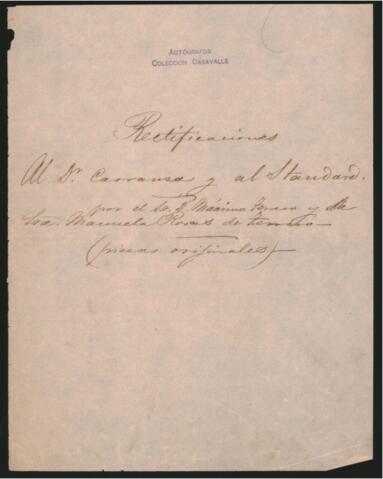 AUTÓGRAFOS
COLECCIÓN CASAVALLE
Rectificaciones
Al Dr. Carranza y al Standard.
por el Sr. D. Máximo Terrero y la
Sra. Manuela Rosas de Terrero
(piezas originales)